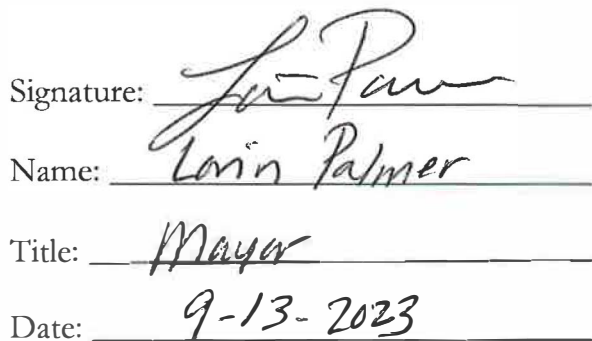 Signature: Lorin Palmer
Name: Lorin Palmer
Title: Mayor
Date: 9-13-2023